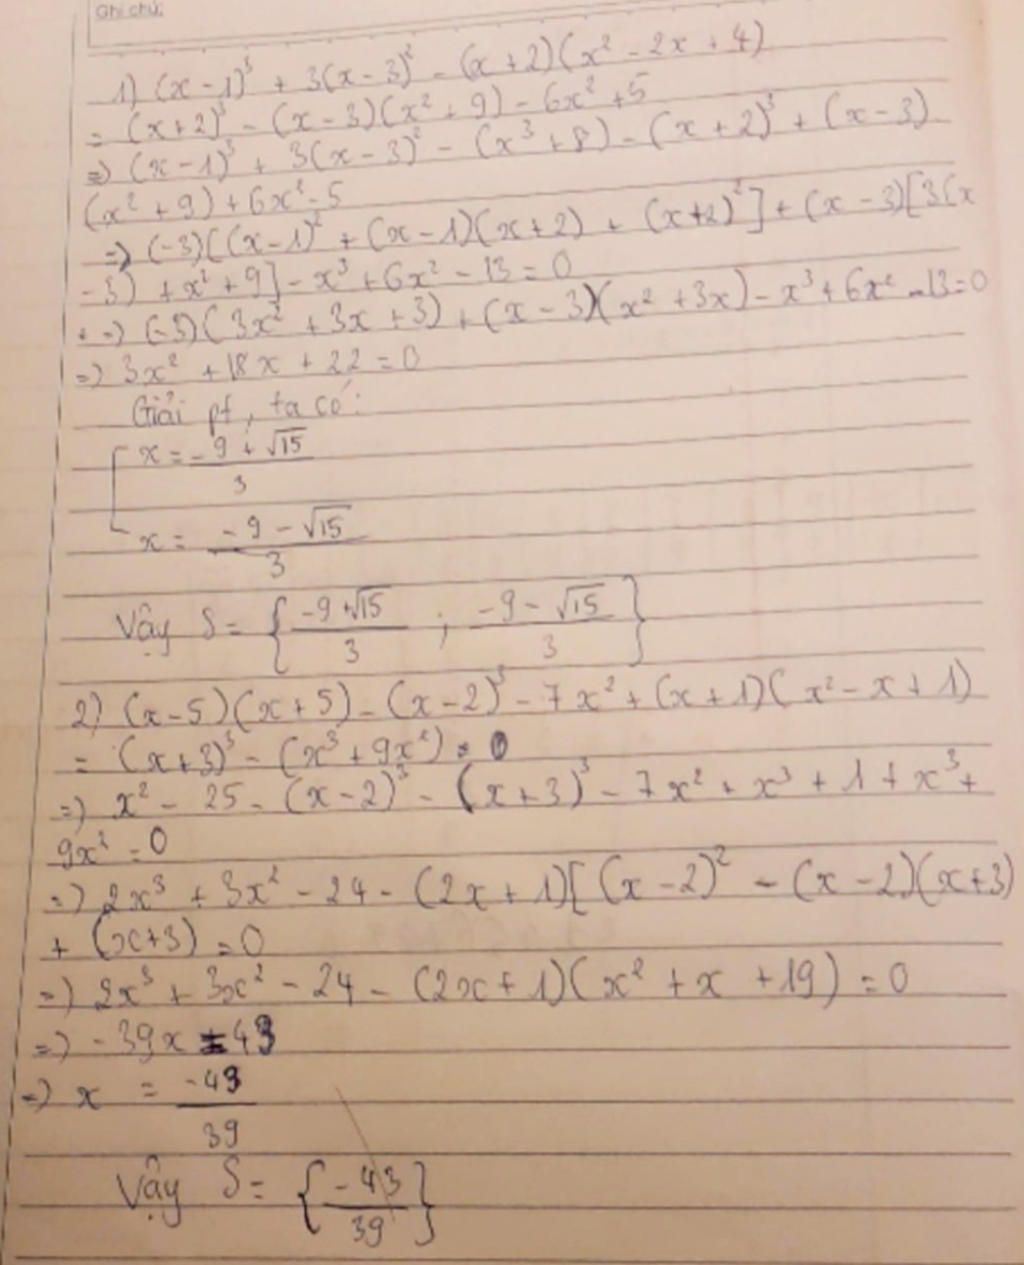 Ghi chú:
1) (x-1)³ + 3(x-3)² - (x+2)(x² - 2x + 4)
= (x+2)³ - (x-3)(x² + 9) - 6x² + 5
=> (x-1)³ + 3(x-3)² - (x³+8) - (x+2)³ + (x-3)
(x² + 9) + 6x² - 5
=> (-3)[(x-1)² + (x-1)(x+2) + (x+2)²] + (x-3)[3(x
-3) + x² + 9] - x³ + 6x² - 13 = 0
=> (-3)(3x² + 3x + 3) + (x-3)(x² + 3x) - x³ + 6x² - 13 = 0
=> 3x² + 18x + 22 = 0
Giải pt, ta có:
x = -9 + √15 / 3
x = -9 - √15 / 3
Vậy S = { -9+√15 / 3 ; -9-√15 / 3 }
2) (x-5)(x+5) - (x-2)³ - 7x² + (x+1)(x² - x + 1)
= (x+3)³ - (x³ + 9x²) = 0
=> x² - 25 - (x-2)³ - (x+3)³ - 7x² + x³ + 1 + x³ +
9x² = 0
=> 2x³ + 3x² - 24 - (2x+1)[(x-2)² - (x-2)(x+3)
+ (x+3) = 0
=> 2x³ + 3x² - 24 - (2x+1)(x² + x + 19) = 0
=> -39x = 43
=> x = -43 / 39
Vậy S = { -43 / 39 }